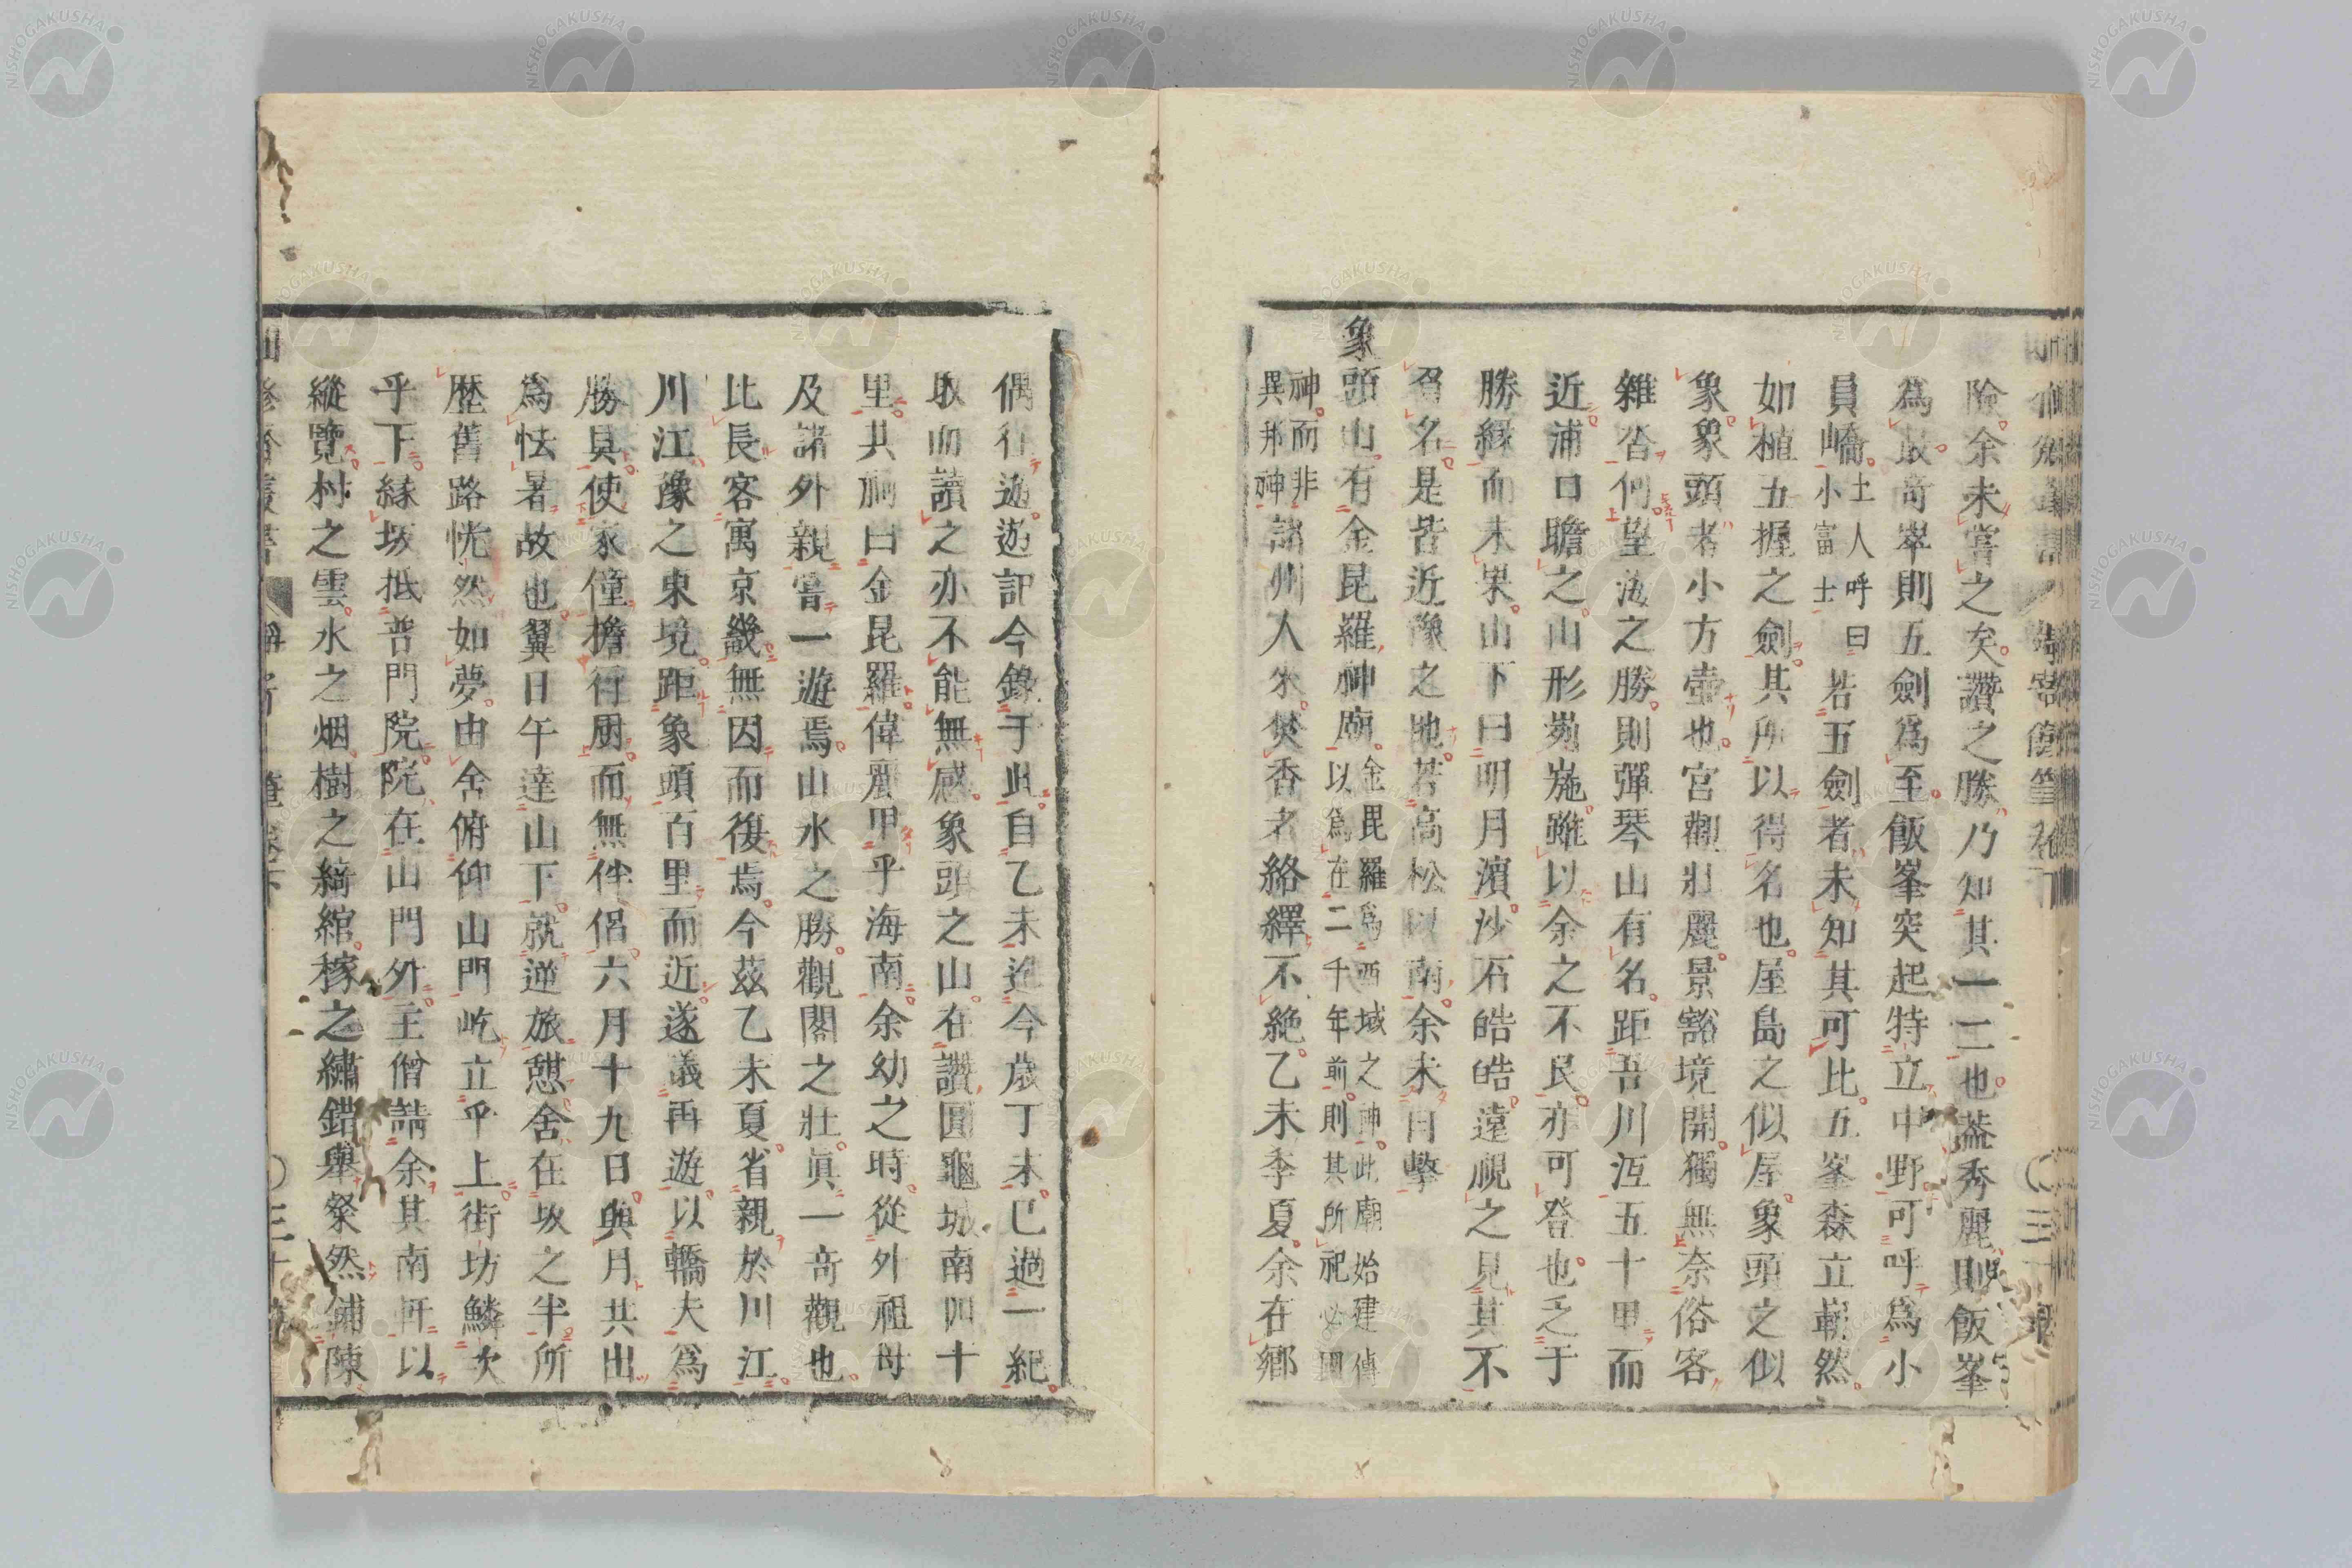 險余未嘗之矣讚之勝乃知其一二也蓋秀麗則飯峯
為最奇崒則五劍為至飯峯突起特立中野可呼為小
員嶠土人呼曰小富士若五劍者未知其可比五峯森立嶄然
如植五握之劍其所以得名也屋島之似屋象頭之似
象象頭者小方壺也宮觀壯麗景豁境開獨無奈俗客
雜沓何望海之勝則彈琴山有名距吾川江五十里而
近浦口瞻之山形崺雖以余之不良亦可登也乏于
勝緣而未果山下曰明月濱沙石皓皓遠視之見其不
負名是皆近豫之地若高松以南余未目擊
象頭山有金昆羅神廟金毘羅為西域之神此廟始建傳以為在二千年前則其所祀必國
神而非異邦神諸州人來焚香者絡繹不絶乙未季夏余在鄉
偶作遊記今錄于此自乙未迄今歲丁未已過一紀
取而讀之亦不能無感象頭之山在讚圓龜城南四十
里其祠曰金昆羅偉麗甲乎海南余幼之時從外祖母
及諸外親嘗一遊焉山水之勝觀閣之壯眞一奇觀也
比長客寓京畿無因而復焉今茲乙未夏省親於川江
川江豫之東境距象頭百里而近遂議再遊以轎夫為
勝具使家僮擔行厨而無伴侶六月十九日與月共出
為怯暑故也翼日午達山下就逆旅憇舍在坂之半所
歷舊路恍然如夢由舍俯仰山門屹立乎上街坊鱗次
乎下緣坂抵普門院院在山門外主僧請余其南軒以
縱覽村之雲水之烟樹之綺綰稼之繡錯舉粲然鋪陳